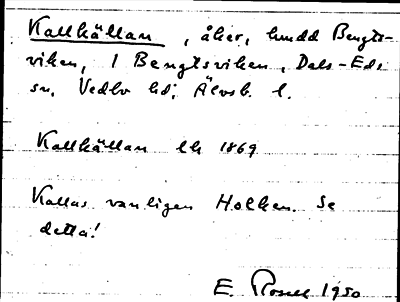 Kallkällan, åker, hmdd Bengts-
viken, 1 Bengtsviken, Dals-Eds
sn, Vedbo hd, Älvsb. l.
Kallkällan lk 1869
Kallas vanligen Holken. Se
detta!
E. Rosell 1950